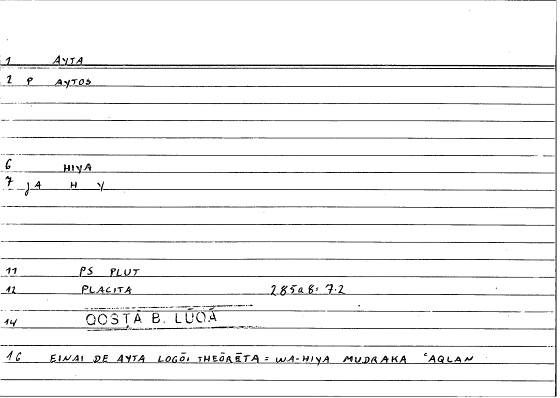 1 AYTA
2 P AYTOS
6 HIYA
7 JA H Y
11 PS PLUT
12 PLACITA 285a8: 7.2
14 QOSṬĀ B. LŪQĀ
16 EINAI DE AYTA LOGŌI THEŌRĒTA = WA-HIYA MUDRAKA ʿAQLAN